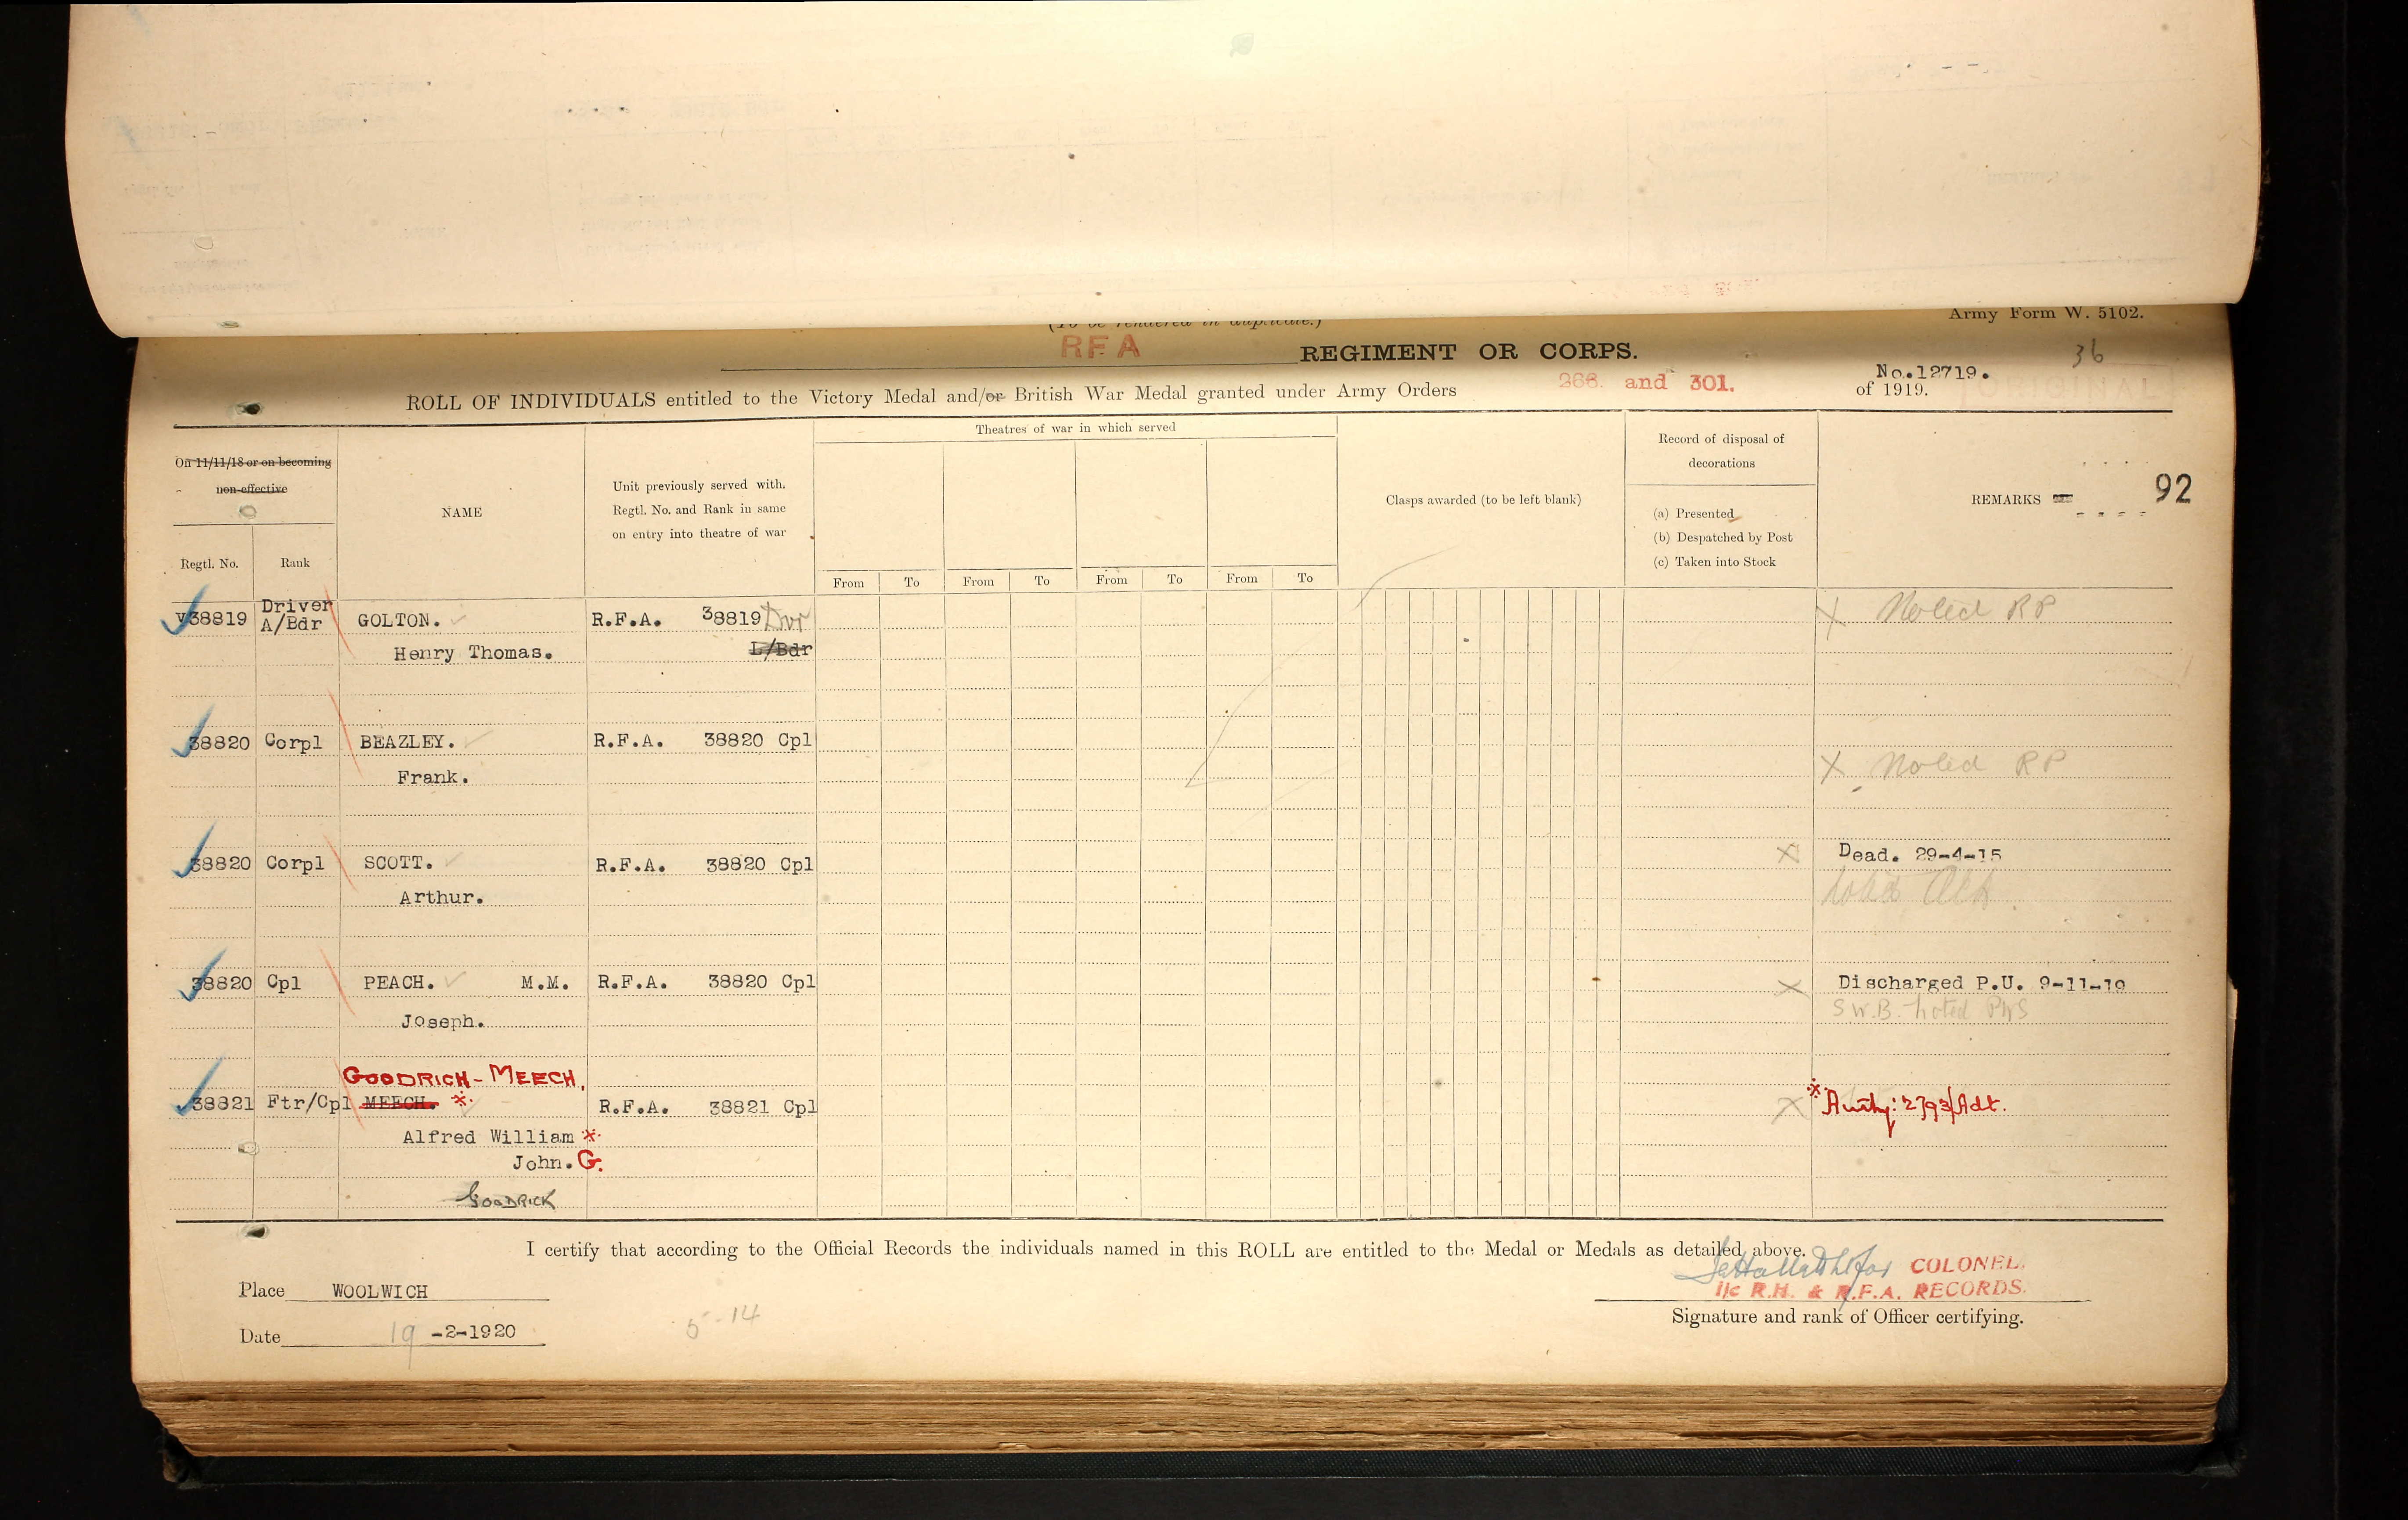 (To be rendered in duplicate.)
Army Form W. 5102.
RFA REGIMENT OR CORPS.
36
No.12719.
ROLL OF INDIVIDUALS entitled to the Victory Medal and/or British War Medal granted under Army Orders 266. and 301. of 1919.
ORIGINAL
On 11/11/18 or on becoming
non-effective
Regtl. No.
Rank
NAME
Unit previously served with.
Regtl. No. and Rank in same
on entry into theatre of war
Theatres of war in which served
From To From To From To From To
Clasps awarded (to be left blank)
Record of disposal of
decorations
(a) Presented
(b) Despatched by Post
(c) Taken into Stock
REMARKS
92
V38819 Driver A/Bdr GOLTON. R.F.A. 38819 Dvr X Noted RP
Henry Thomas. L/Bdr
38820 Corpl BEAZLEY. R.F.A. 38820 Cpl
Frank. X Noted RP
38820 Corpl SCOTT. R.F.A. 38820 Cpl X Dead. 29-4-15
Arthur.
38820 Cpl PEACH. M.M. R.F.A. 38820 Cpl X Discharged P.U. 9-11-19
Joseph. S.W.B. noted PWS
GOODRICH-MEECH.
38821 Ftr/Cpl MEECH. * R.F.A. 38821 Cpl X * Authy: 2793/Adt.
Alfred William *
John. G.
GOODRICK
I certify that according to the Official Records the individuals named in this ROLL are entitled to the Medal or Medals as detailed above.
for COLONEL.
I/c R.H. & R.F.A. RECORDS.
Place WOOLWICH
Signature and rank of Officer certifying.
Date 19 -2-1920
5-14